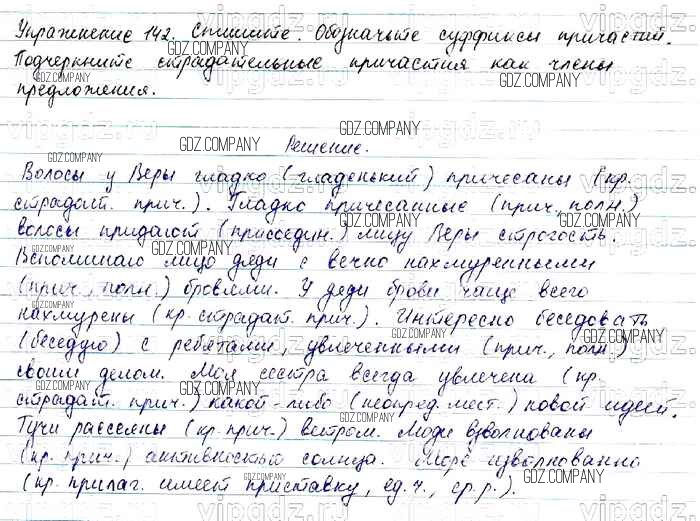 Упражнение 142. Спишите. Обозначьте суффиксы причастий.
Подчеркните страдательные причастия как члены
предложения.
Решение.
Волосы у Веры гладко (гладенький) причесаны (кр.
страдат. прич.). Гладко причесанные (прич., полн.)
волосы придают (присоедин.) лицу Веры строгость.
Вспоминаю лицо деди с вечно нахмуренными
(прич., полн.) бровями. У деди брови чаще всего
нахмурены (кр. страдат. прич.). Интересно беседовать
(беседую) с ребятами, увлеченными (прич., полн.)
своим делом. Моя сестра всегда увлечена (кр.
страдат. прич.) какой-либо (неопред. мест.) новой идеей.
Тучи рассеяны (кр. прич.) ветром. Моди взволнованы
(кр. прич.) активностью солнца. Море взволнованно
(кр. прилаг. имеет приставку, ед. ч., ср. р.).